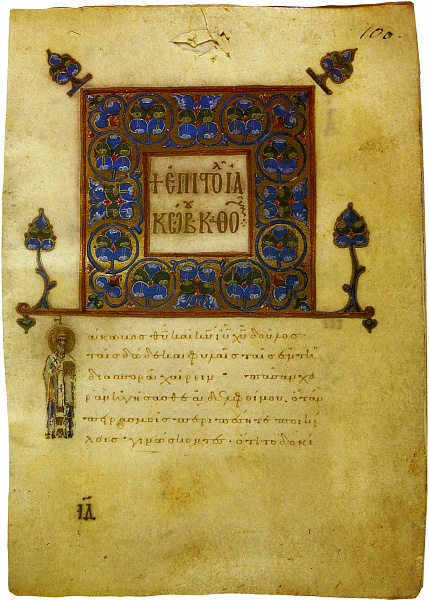 100.
+ ἘΠΙΣΤΟΛ ΙΑ
ΚΩΒΟΥ ΚΑΘΟΛ
άκωβος θῦ καὶ κῦ ἰῦ χῦ δοῦλος
ταῖς δώδεκα φυλαῖς ταῖς ἐν τῆ
διασπορᾶ χαίρειν πᾶσαν χα
ρὰν ἡγήσασθε ἀδελφοί μου, ὅταν
πειρασμοῖς περιπέσητε ποικί
λοις γινώσκοντες ὅτι τὸ δοκί
ΙΔ